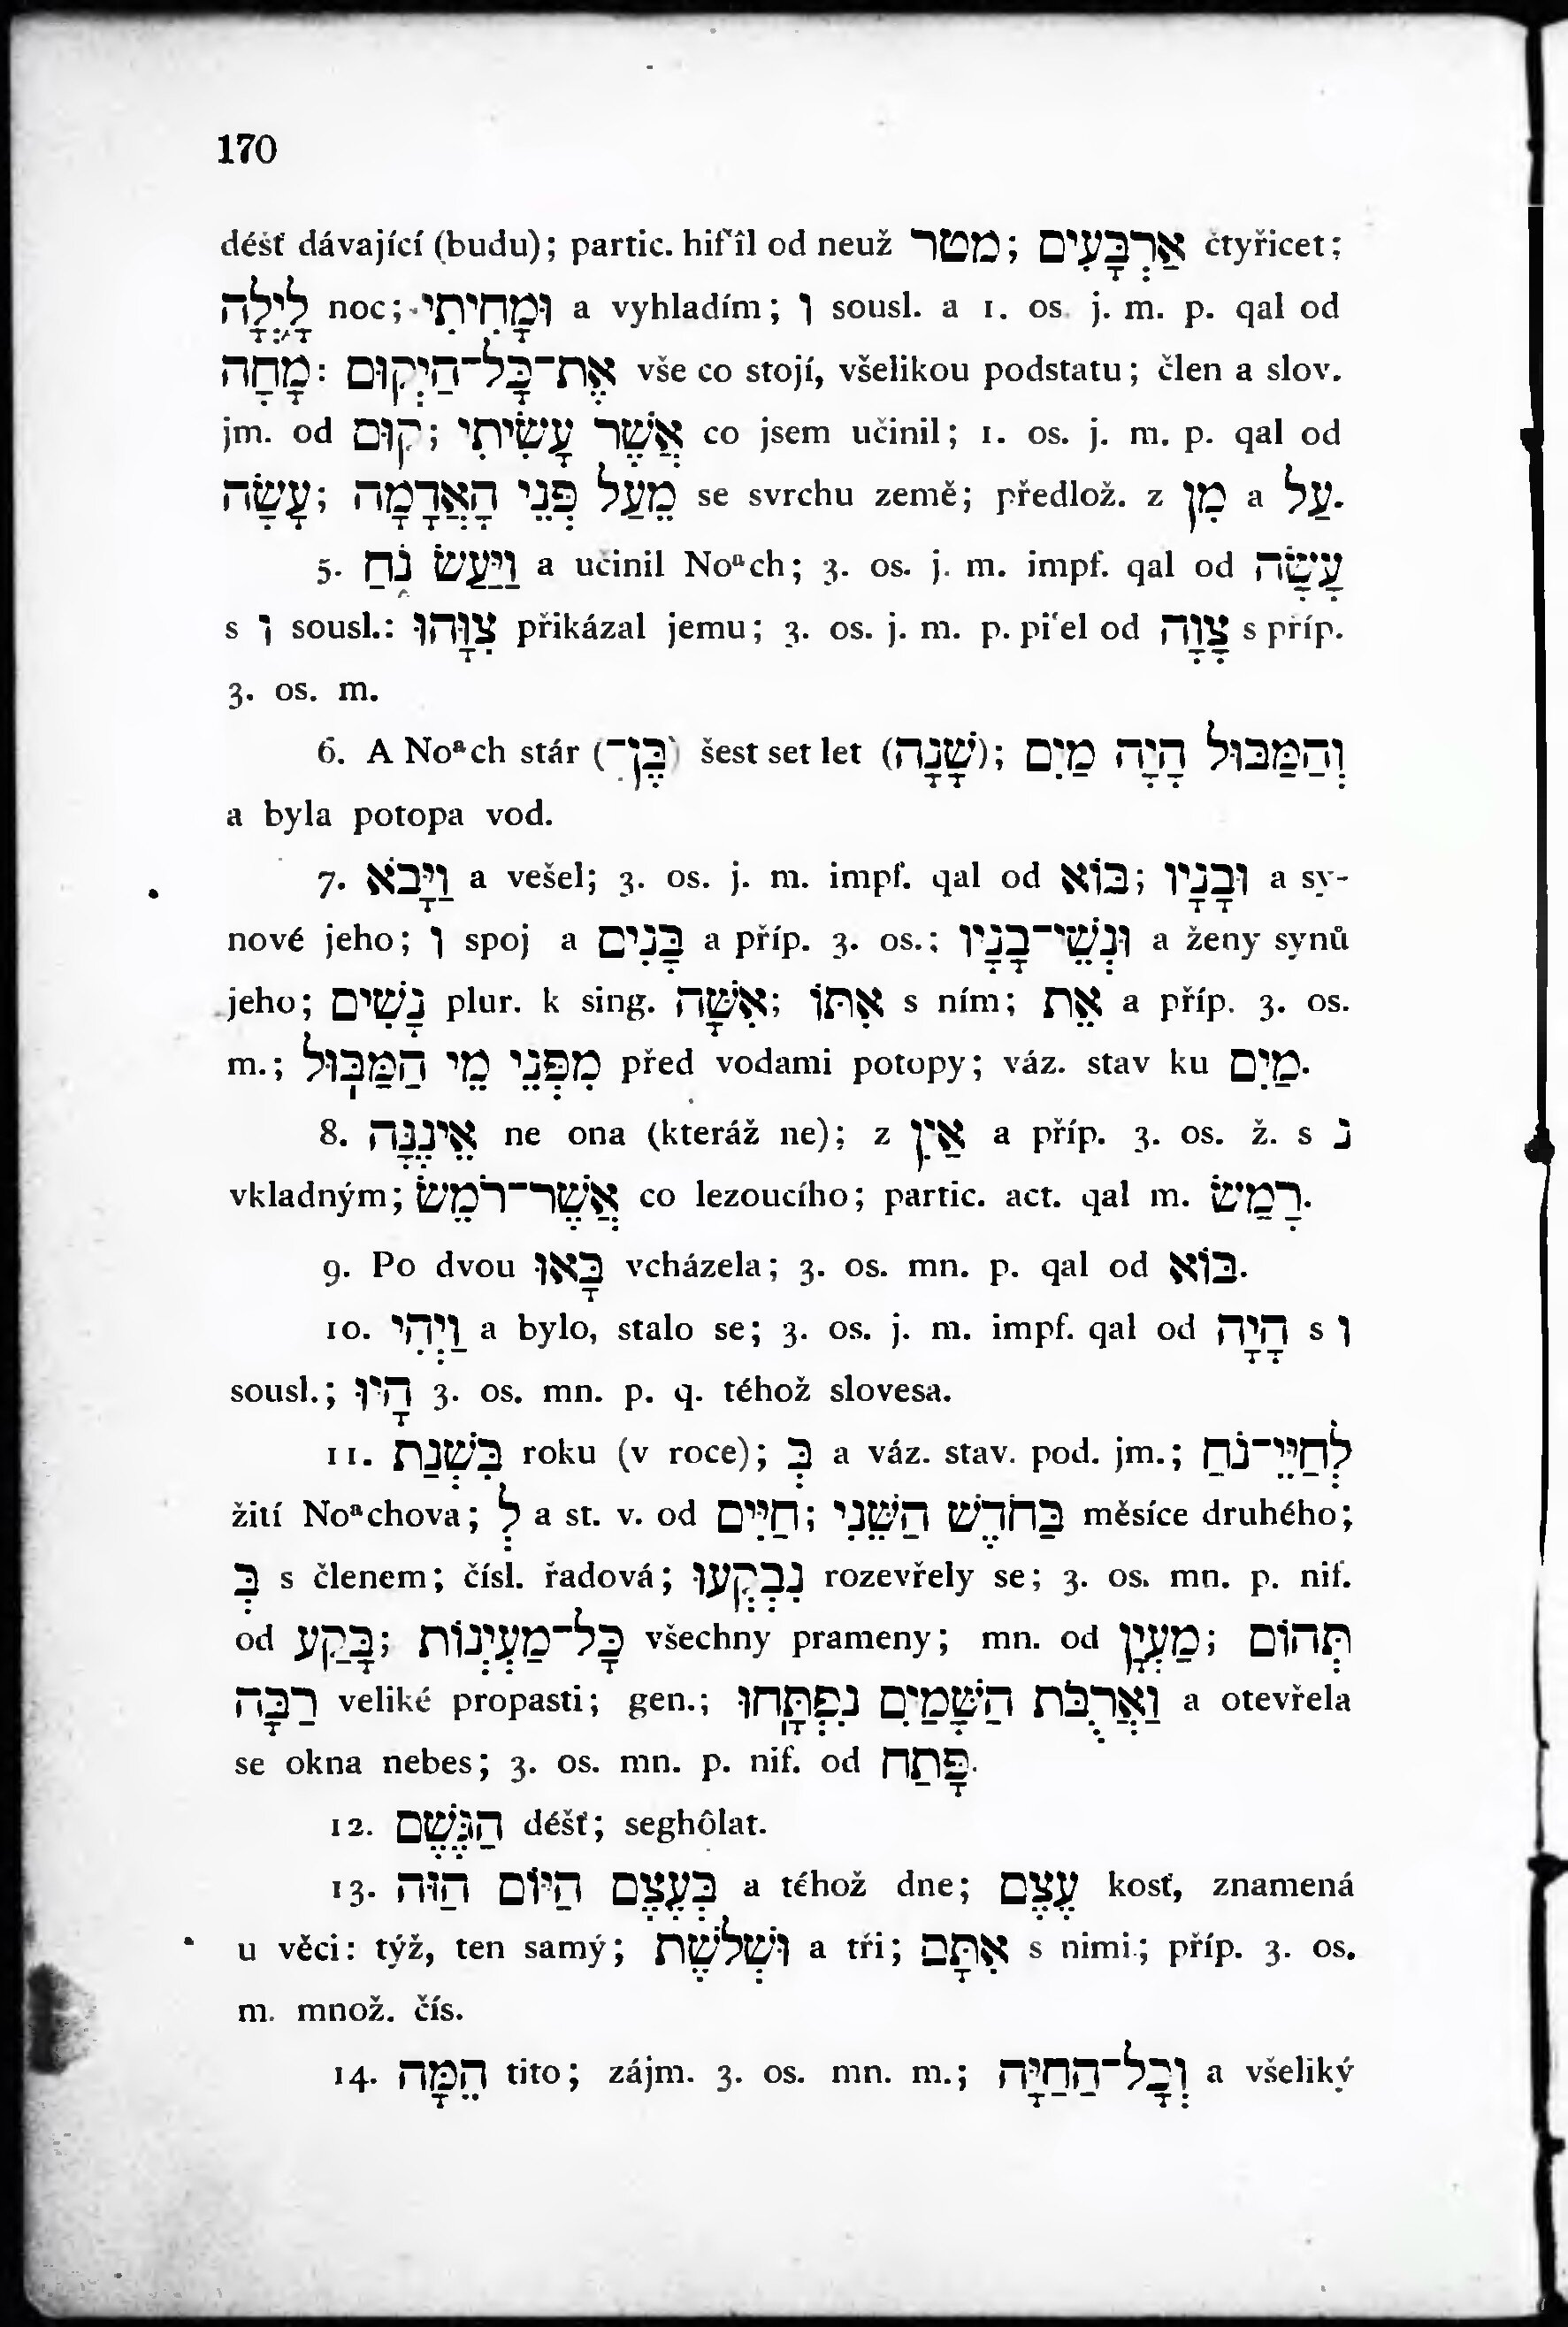 170
déšť dávající (budu); partic. hifʿîl od neuž מטר; אַרְבָּעִים čtyřicet;
לָיְלָה noc; וּמָחִיתִי a vyhladím; ו sousl. a 1. os. j. m. p. qal od
מָחָה: אֶת־כָּל־הַיְקוּם vše co stojí, všelikou podstatu; člen a slov.
jm. od קוּם; אֲשֶׁר עָשִׂיתִי co jsem učinil; 1. os. j. m. p. qal od
עָשָׂה; מֵעַל פְּנֵי הָאֲדָמָה se svrchu země; předlož. z מִן a עַל.
5. וַיַּעַשׂ נֹחַ a učinil Noᵃch; 3. os. j. m. impf. qal od עָשָׂה
s ו sousl.: צִוָּהוּ přikázal jemu; 3. os. j. m. p. piʿel od צָוָה s příp.
3. os. m.
6. A Noᵃch stár (בֶּן־) šest set let (שָׁנָה); וְהַמַּבּוּל הָיָה מַיִם
a byla potopa vod.
7. וַיָּבֹא a vešel; 3. os. j. m. impf. qal od בּוֹא; וּבָנָיו a sy-
nové jeho; ו spoj a בָּנִים a příp. 3. os.; וּנְשֵׁי־בָנָיו a ženy synů
jeho; נָשִׁים plur. k sing. אִשָּׁה; אִתּוֹ s ním; אֵת a příp. 3. os.
m.; מִפְּנֵי מֵי הַמַּבּוּל před vodami potopy; váz. stav ku מַיִם.
8. אֵינֶנָּה ne ona (kteráž ne); z אַיִן a příp. 3. os. ž. s נ
vkladným; אֲשֶׁר־רֹמֵשׂ co lezoucího; partic. act. qal m. רָמַשׂ.
9. Po dvou בָּאוּ vcházela; 3. os. mn. p. qal od בּוֹא.
10. וַיְהִי a bylo, stalo se; 3. os. j. m. impf. qal od הָיָה s ו
sousl.; הָיוּ 3. os. mn. p. q. téhož slovesa.
11. בִּשְׁנַת roku (v roce); בְּ a váz. stav. pod. jm.; לְחַיֵּי־נֹחַ
žití Noᵃchova; לְ a st. v. od חַיִּים; בַּחֹדֶשׁ הַשֵּׁנִי měsíce druhého;
בְּ s členem; čísl. řadová; נִבְקְעוּ rozevřely se; 3. os. mn. p. nif.
od בָּקַע; כָּל־מַעְיְנוֹת všechny prameny; mn. od מַעְיָן; תְּהוֹם
רַבָּה veliké propasti; gen.; וַאֲרֻבֹּת הַשָּׁמַיִם נִפְתָּחוּ a otevřela
se okna nebes; 3. os. mn. p. nif. od פָּתַח.
12. הַגֶּשֶׁם déšť; seghôlat.
13. בְּעֶצֶם הַיּוֹם הַזֶּה a téhož dne; עֶצֶם kosť, znamená
u věci: týž, ten samý; וּשְׁלֹשֶׁת a tři; אִתָּם s nimi; příp. 3. os.
m. množ. čís.
14. הֵמָּה tito; zájm. 3. os. mn. m.; וְכָל־הַחַיָּה a všeliký